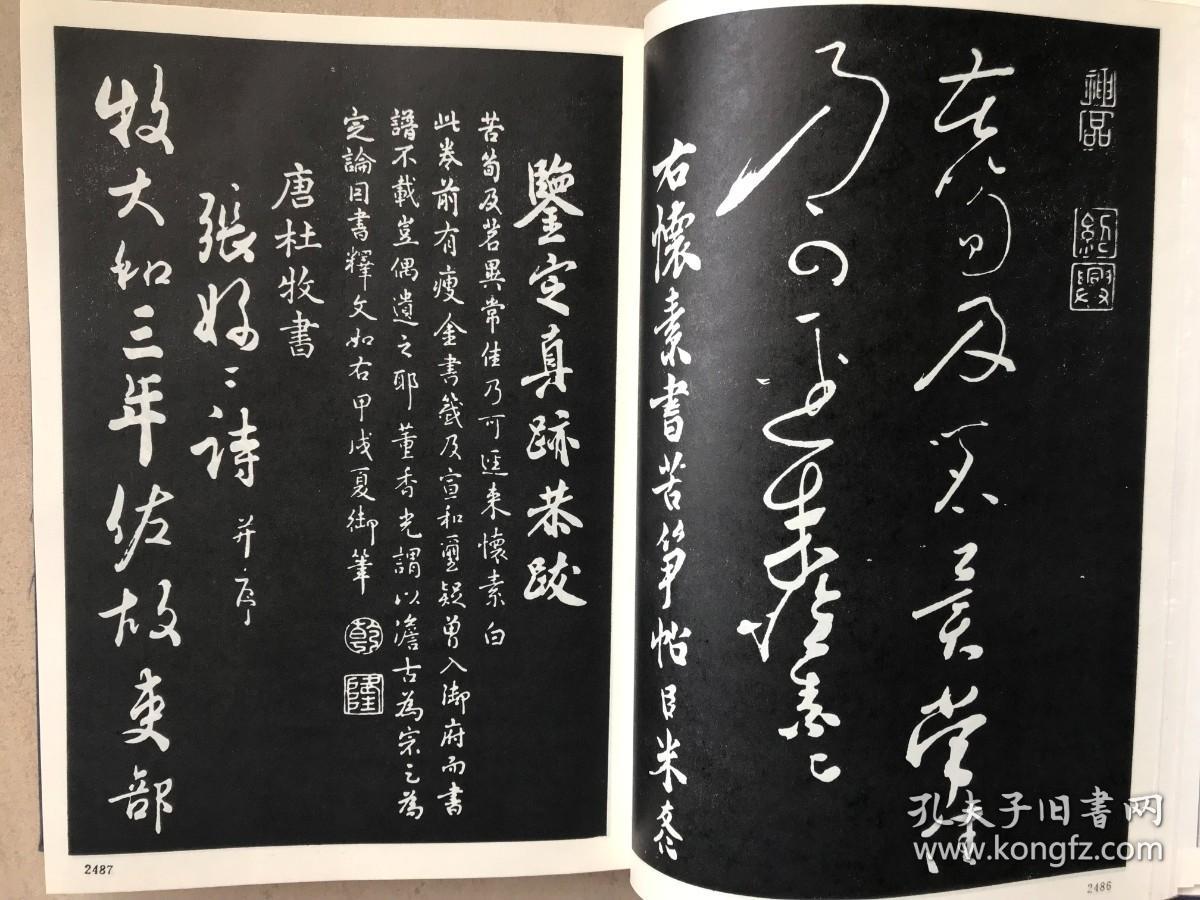 神品
苦笋及茗異常佳
乃可逕来懷素上
右懷素書苦笋帖臣米友仁
2486
鑒定真跡恭跋
苦筍及茗異常佳乃可逕来懷素白
此卷前有瘦金書籤及宣和璽疑曾入御府而書
譜不載豈偶遺之耶董香光謂以澹古為宗之為
定論因書釋文如右甲戌夏御筆
乾
隆
唐杜牧書
張好〻詩并序
牧大和三年佐故吏部
2487
孔夫子旧书网
www.kongfz.com